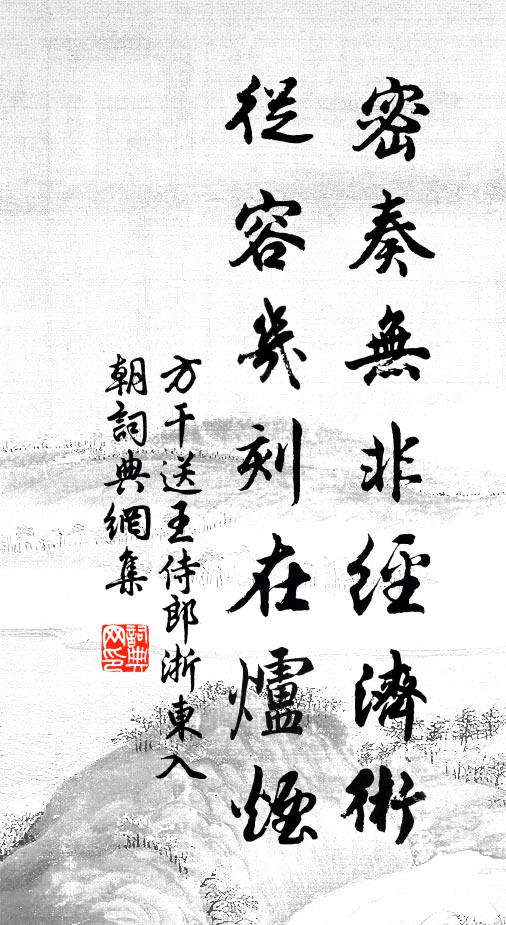 密奏無非經濟術
從容幾刻在爐煙
方干送王侍郎浙東入
朝詞典網集
詞典
网印